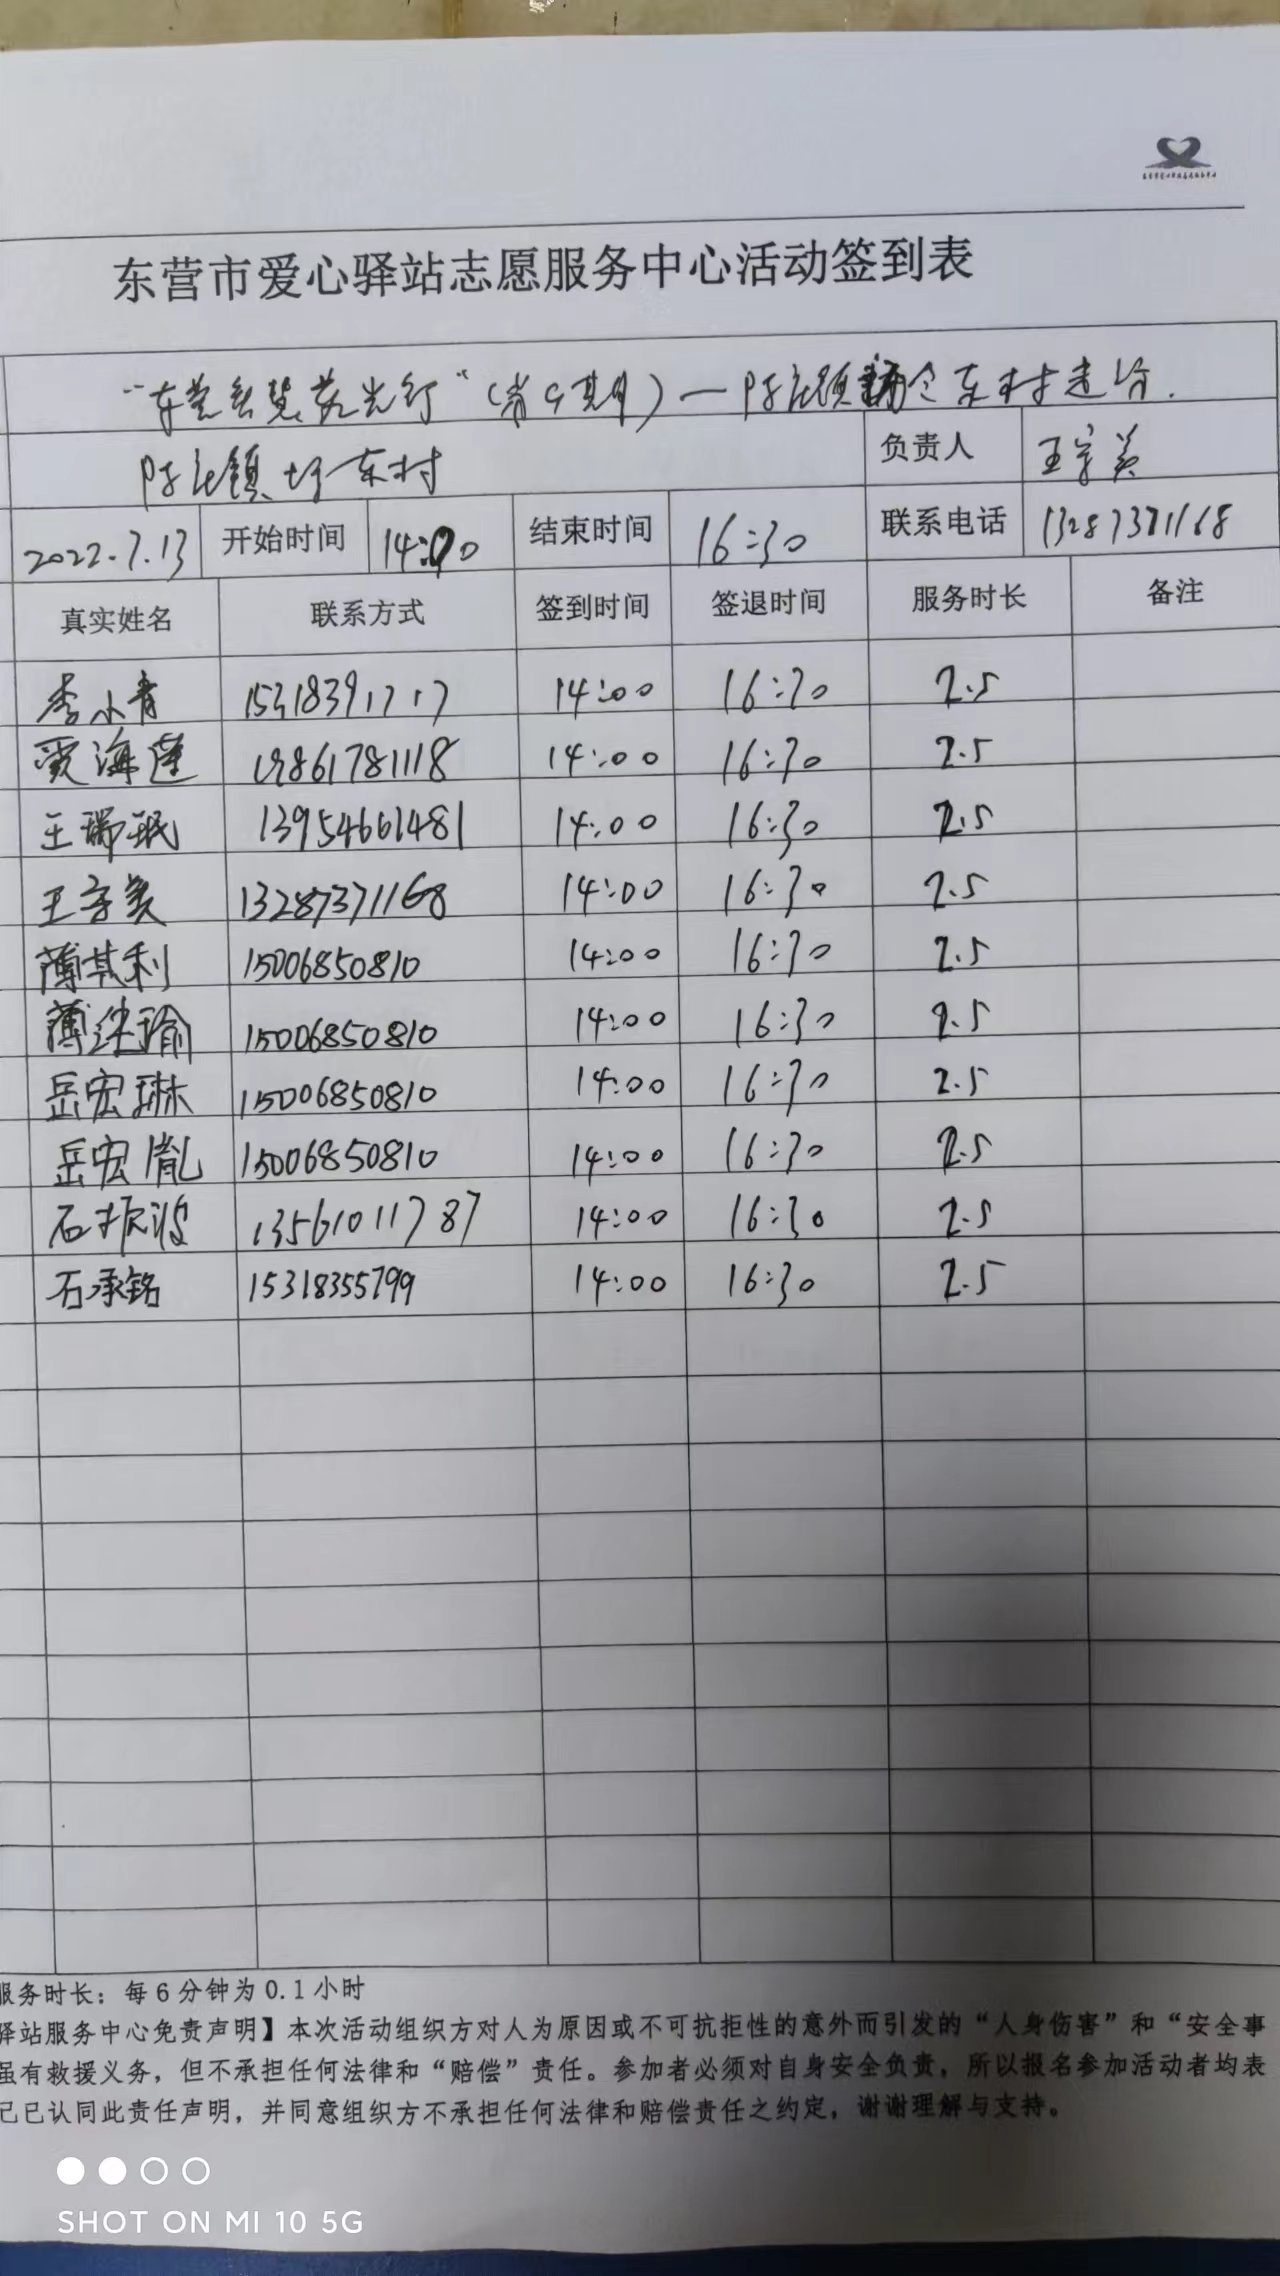 东营市爱心驿站志愿服务中心活动签到表
负责人
2022.7.13 开始时间 14:00 结束时间 16:30 联系电话
真实姓名 联系方式 签到时间 签退时间 服务时长 备注
李小青 14:00 16:30 2.5
贾海莲 19861781118 14:00 16:30 2.5
王瑞珉 13954661481 14:00 16:30 2.5
13287371168 14:00 16:30 2.5
薄其利 15006850810 14:00 16:30 2.5
15006850810 14:00 16:30 2.5
岳宏琳 15006850810 14:00 16:30 2.5
岳宏胤 15006850810 14:00 16:30 2.5
石振波 13561011787 14:00 16:30 2.5
石承铭 15318355799 14:00 16:30 2.5
服务时长：每6分钟为0.1小时
驿站服务中心免责声明】本次活动组织方对人为原因或不可抗拒性的意外而引发的“人身伤害”和“安全事
虽有救援义务，但不承担任何法律和“赔偿”责任。参加者必须对自身安全负责，所以报名参加活动者均表
己已认同此责任声明，并同意组织方不承担任何法律和赔偿责任之约定，谢谢理解与支持。
SHOT ON MI 10 5G